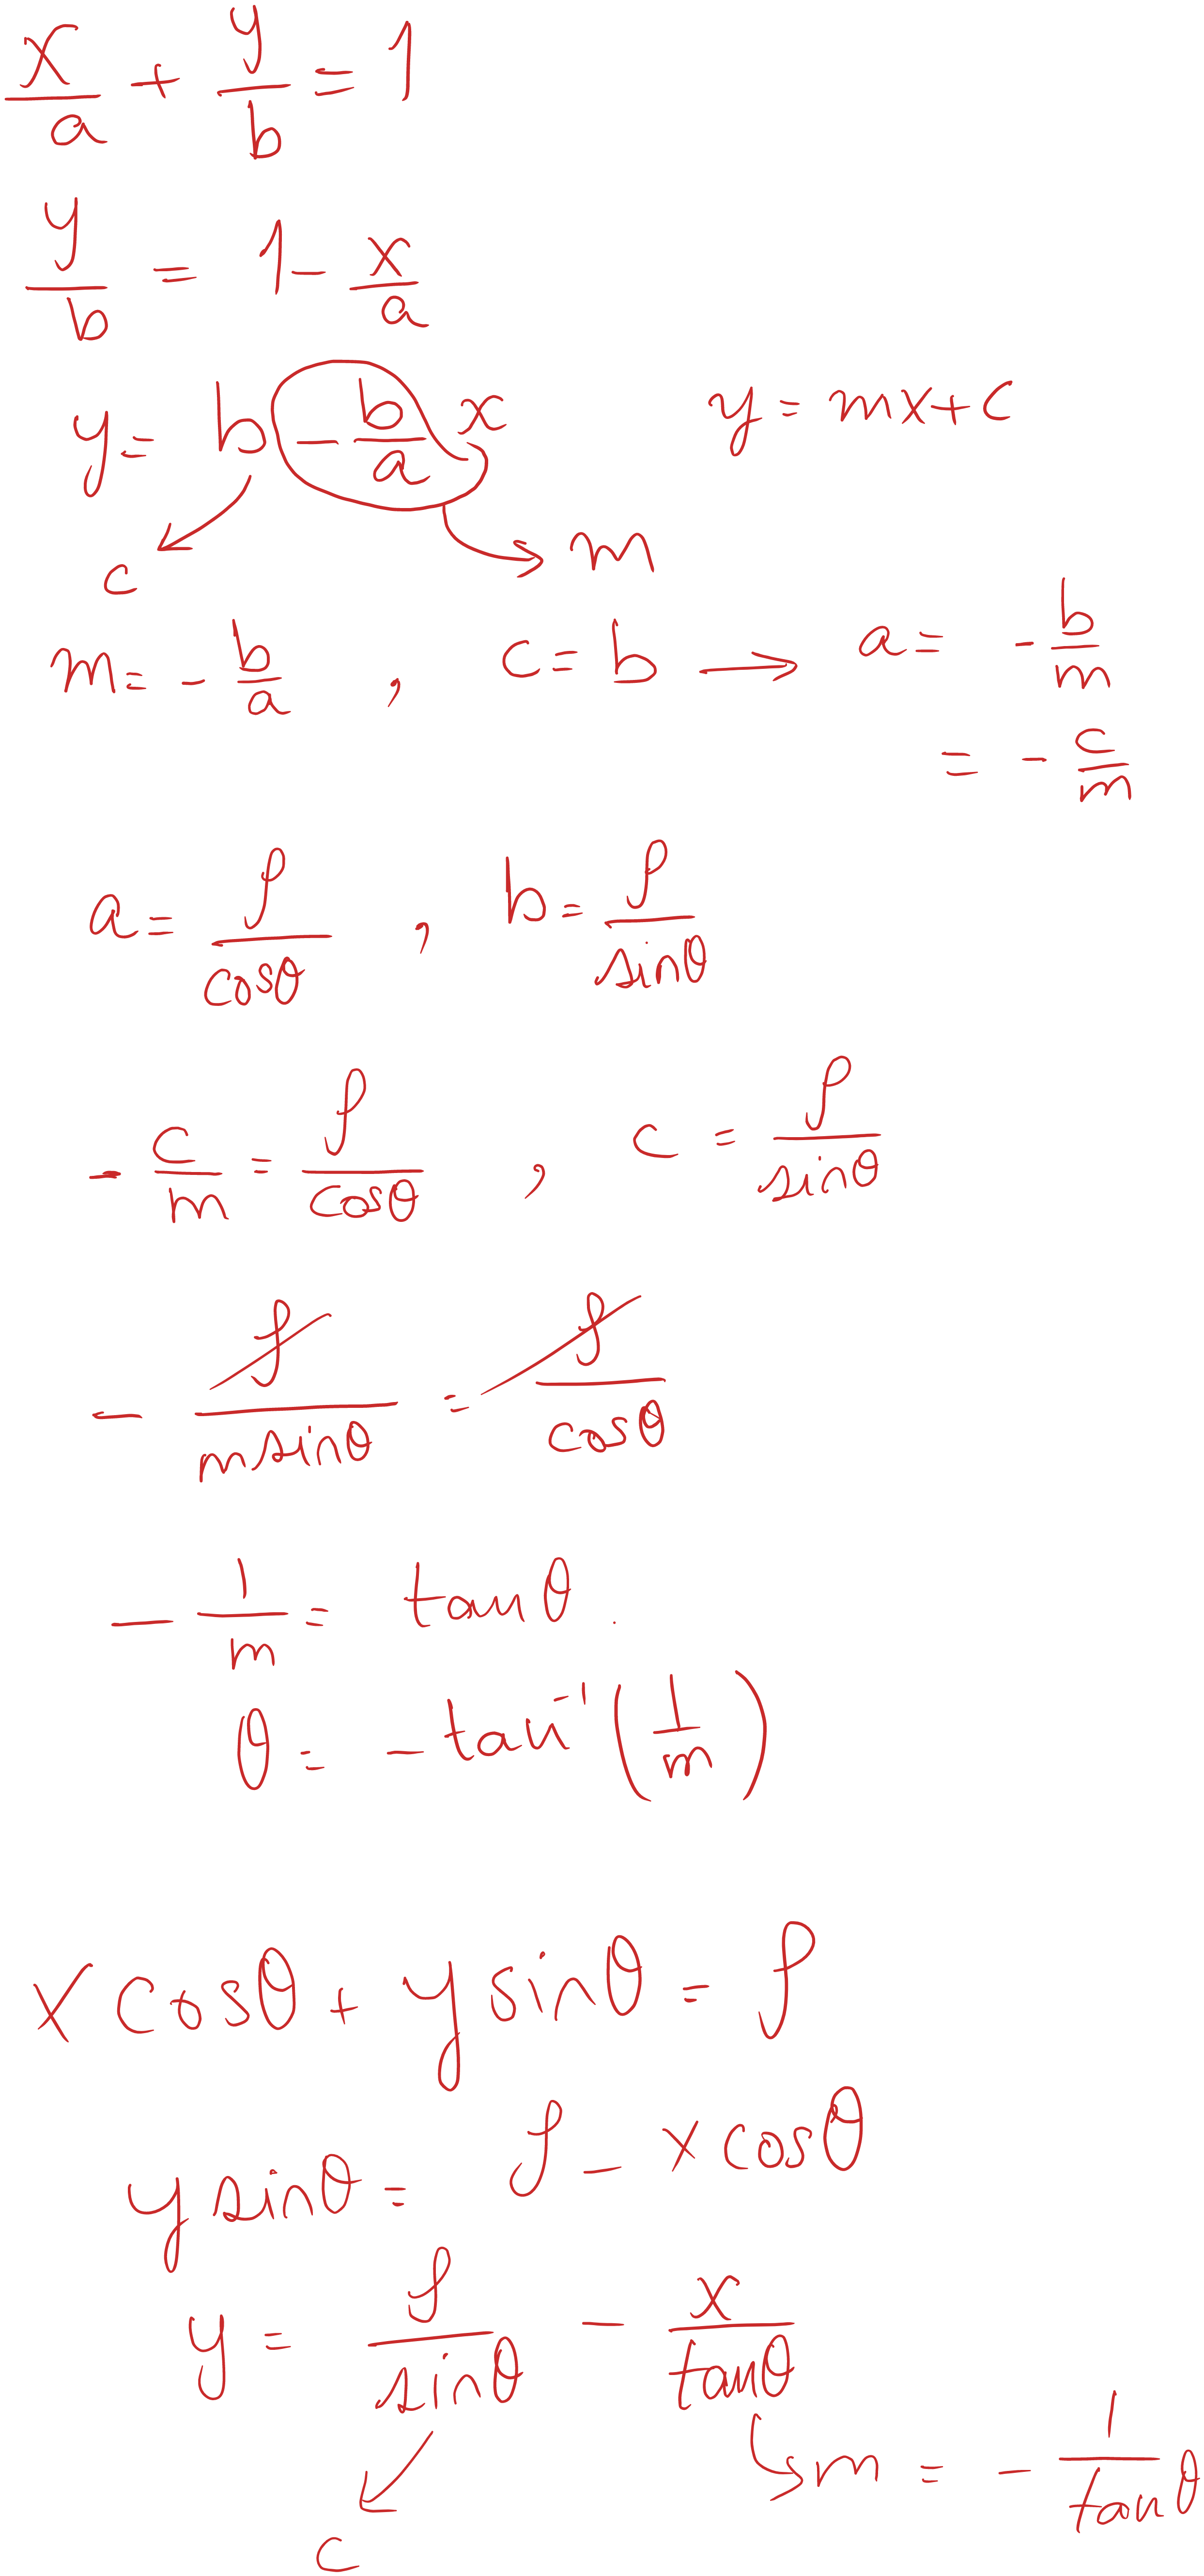 x/a + y/b = 1
y/b = 1 - x/a
y = b - b/a x    y = mx + c
c    m
m = - b/a , c = b → a = - b/m
= - c/m
a = ρ/cosθ , b = ρ/sinθ
- c/m = ρ/cosθ , c = ρ/sinθ
- ρ/(m sinθ) = ρ/cosθ
- 1/m = tanθ .
θ = - tan⁻¹ (1/m)
x cosθ + y sinθ = ρ
y sinθ = ρ - x cosθ
y = ρ/sinθ - x/tanθ
c    m = - 1/tanθ